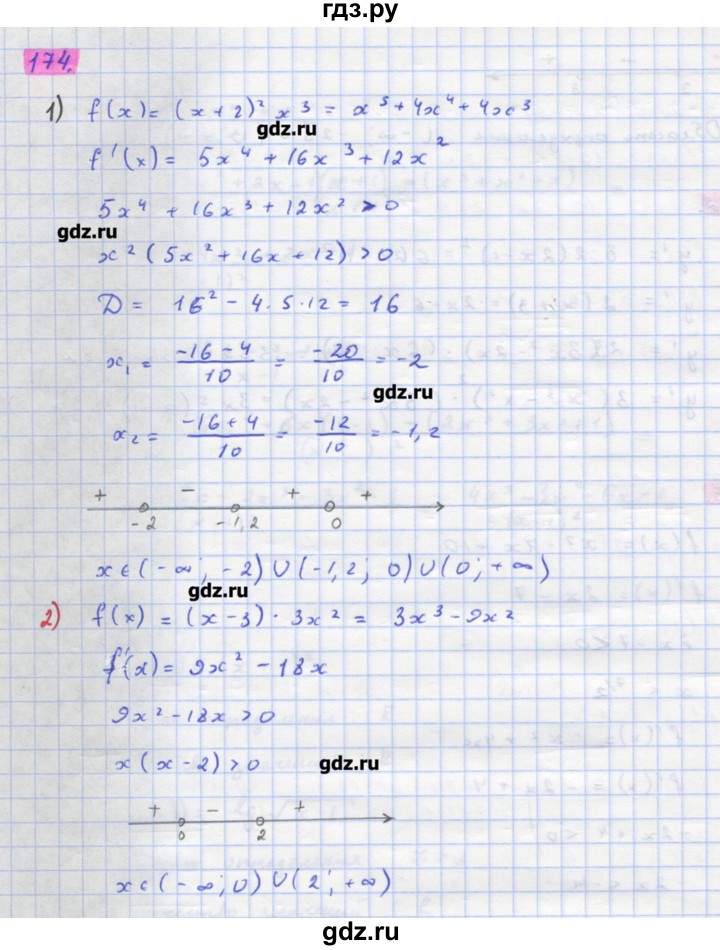 гдз.ру
174.
1) f(x) = (x+2)² x³ = x⁵ + 4x⁴ + 4x³
гдз.ру
f'(x) = 5x⁴ + 16x³ + 12x²
5x⁴ + 16x³ + 12x² > 0
гдз.ру
x² (5x² + 16x + 12) > 0
D = 16² - 4 · 5 · 12 = 16
x₁ = (-16 - 4)/10 = -20/10 = -2
гдз.ру
x₂ = (-16 + 4)/10 = -12/10 = -1,2
+ - + +
-2 -1,2 0
x ∈ (-∞; -2) ∪ (-1,2; 0) ∪ (0; +∞)
гдз.ру
2) f(x) = (x-3) · 3x² = 3x³ - 9x²
f'(x) = 9x² - 18x
9x² - 18x > 0
x (x-2) > 0
гдз.ру
+ - +
0 2
x ∈ (-∞; 0) ∪ (2; +∞)